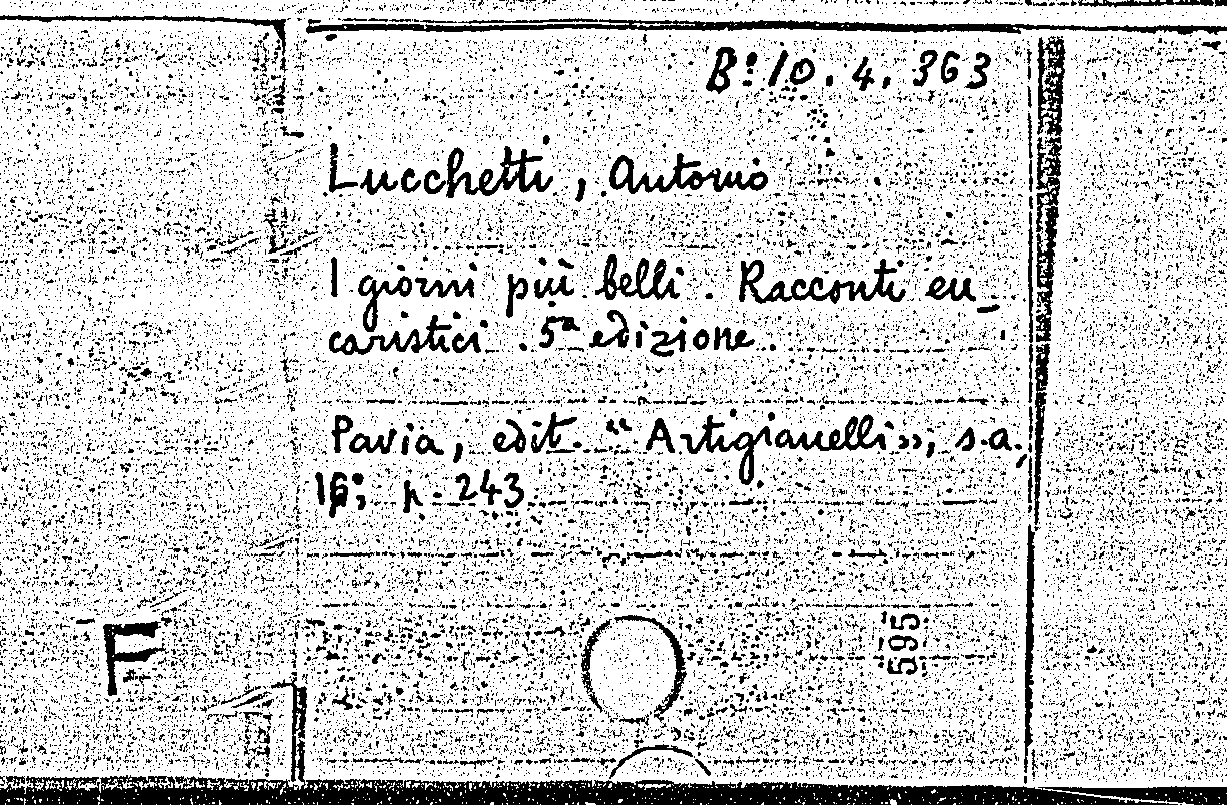 Bº 10. 4. 363
Lucchetti, Antonio
I giorni più belli. Racconti eu_
caristici. 5ª edizione.
Pavia, edit. "Artigianelli», s.a.,
16º; p. 243.
F
595